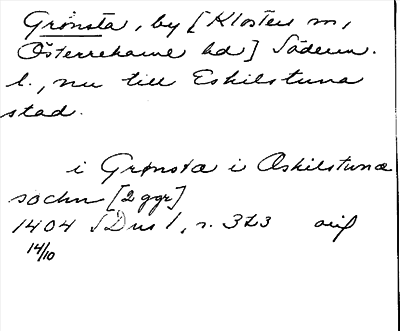 Grønsta, by [Klosters sn,
Österrekarne hd] Söderm.
l., nu till Eskilstuna
stad.
i Grønsta i Øskilstuna
sochn [2 ggr]
1404 SD ns 1, s. 323 avs
14/10